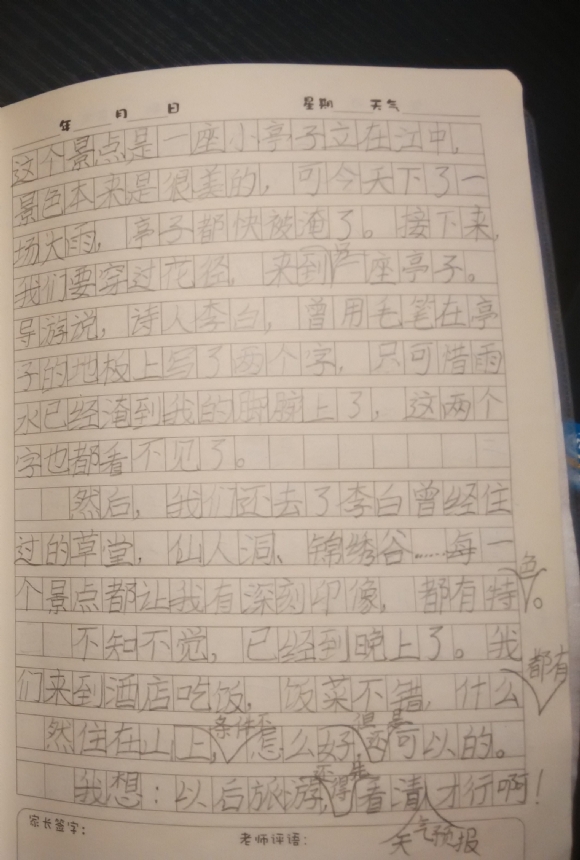 年 月 日 星期 天气
这个景点是一座小亭子立在江中,
景色本来是很美的,可今天下了一
场大雨,亭子都快被淹了。接下来,
我们要穿过花径,来到另一座亭子。
导游说,诗人李白,曾用毛笔在亭
子的地板上写了两个字,只可惜雨
水已经淹到我的脚腕上了,这两个
字也都看不见了。
然后,我们还去了李白曾经住
过的草堂,仙人洞、锦绣谷……每一
个景点都让我有深刻印像,都有特色。
不知不觉,已经到晚上了。我
们来到酒店吃饭,饭菜不错,什么都有
然住在山上,条件不怎么好,但是可以的。
我想:以后旅游,还是得看清天气预报才行啊!
家长签字:
老师评语: